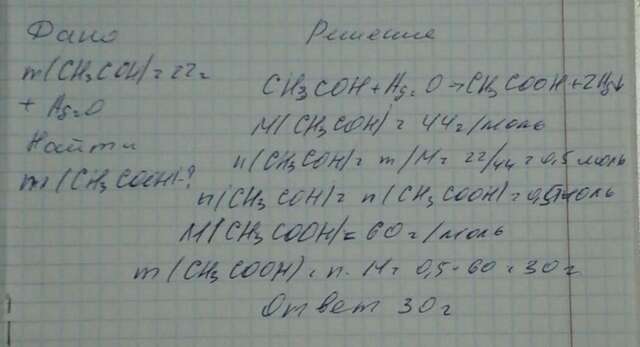 Дано
m(CH₃COH)=22г
+ Ag₂O
Найти
m(CH₃COOH)-?
Решение
CH₃COH+Ag₂O→CH₃COOH+2Ag↓
M(CH₃COH)=44г/моль
n(CH₃COH)=m/M=22/44=0,5моль
n(CH₃COH)=n(CH₃COOH)=0,5моль
M(CH₃COOH)=60г/моль
m(CH₃COOH)=n·M=0,5·60=30г
Ответ 30г